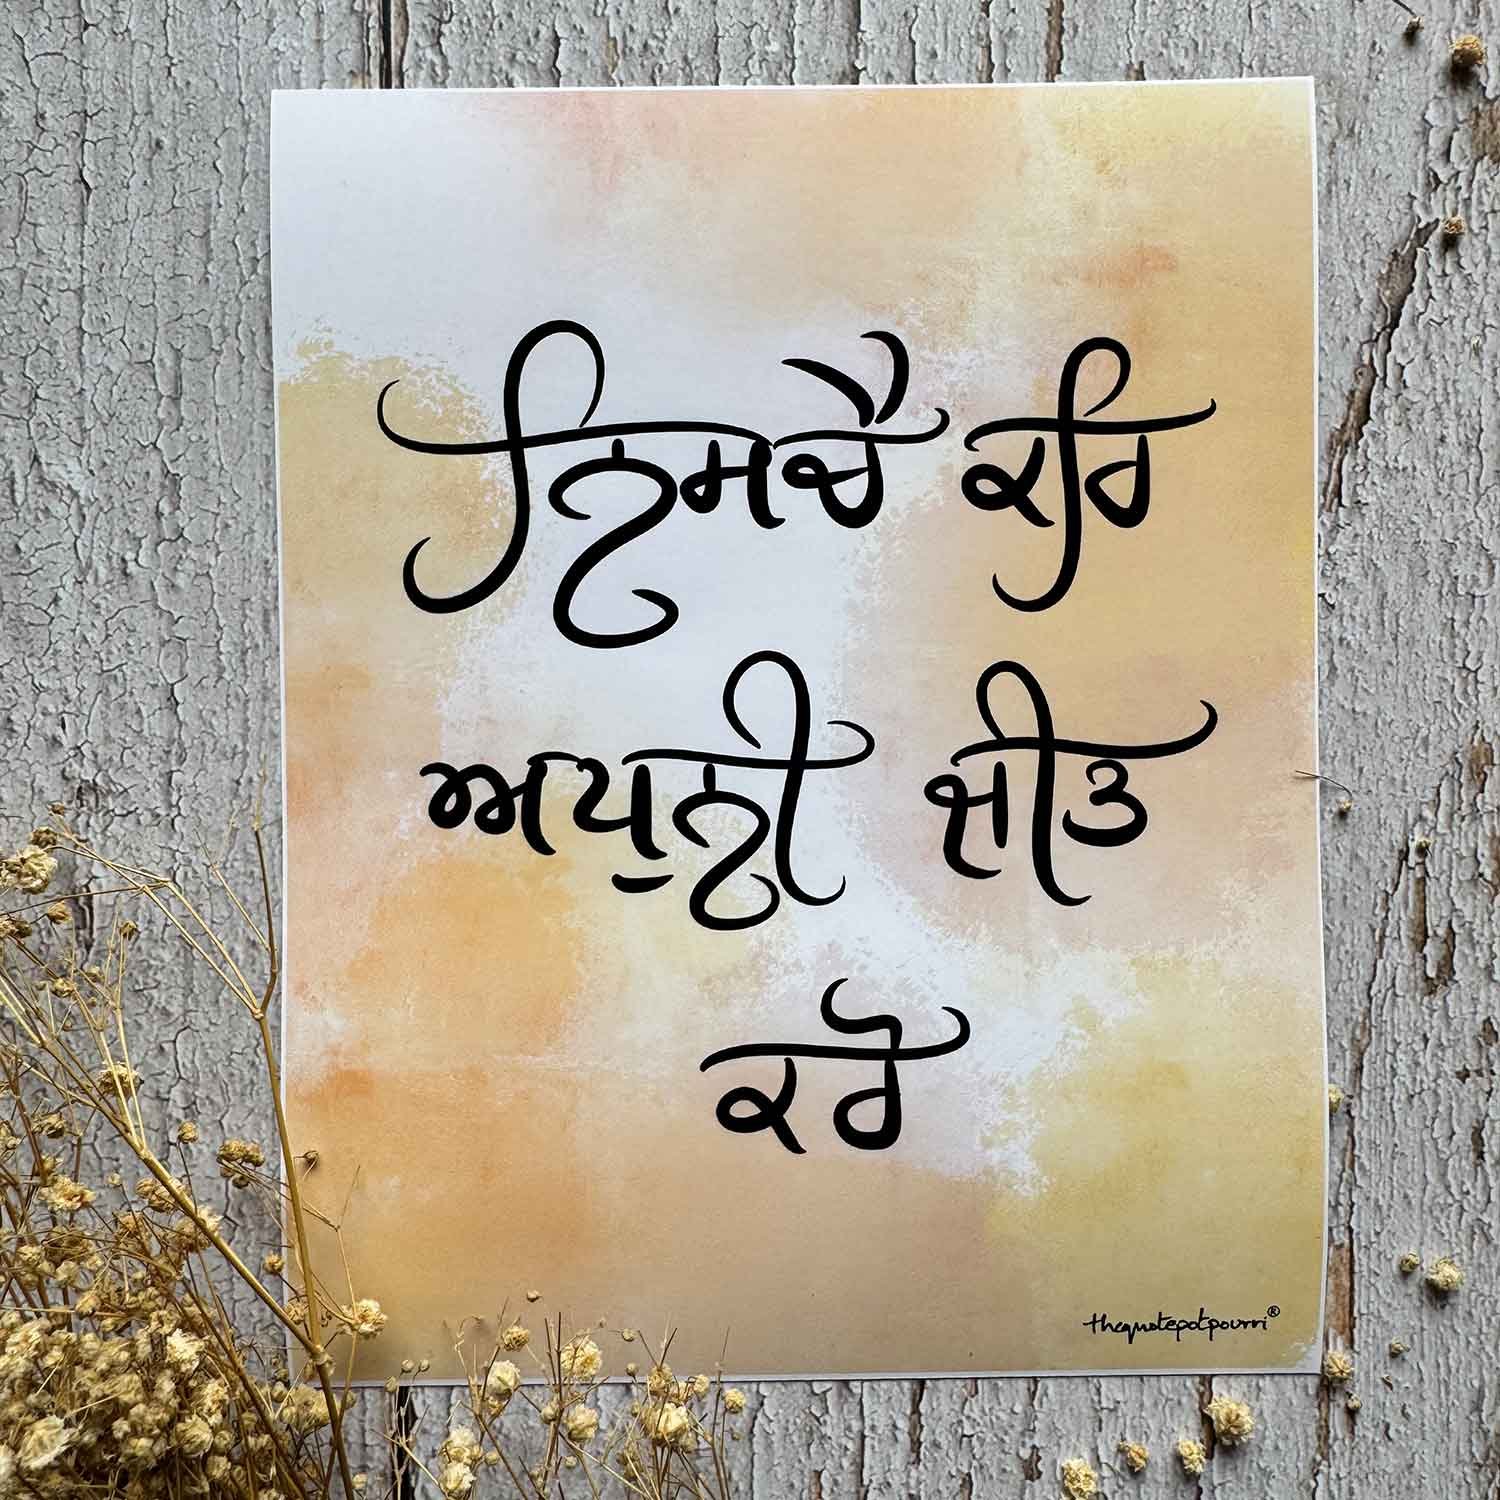 ਨਿਸਚੈ ਕਰਿ
ਅਪੁਨੀ ਜੀਤ
ਕਰੋ
thequotepotpourri®